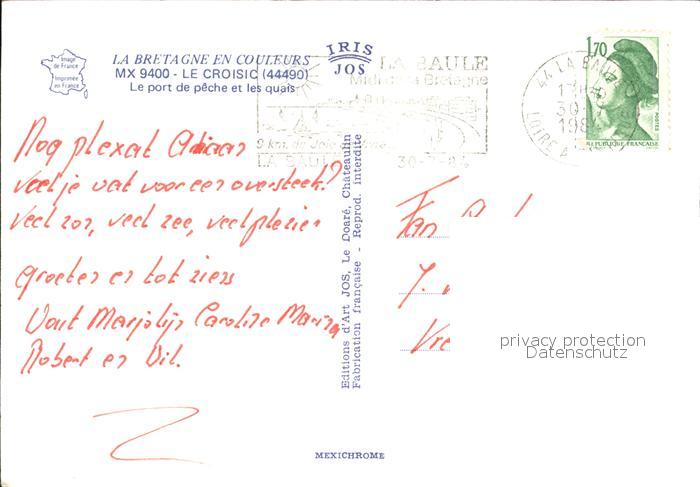 Image
de France
Imprimée
en France
LA BRETAGNE EN COULEURS
MX 9400 - LE CROISIC (44490)
Le port de pêche et les quais
IRIS
JOS
LA BAULE
Midi de la Bretagne
9 km de
LA BAULE
30-7-84
44 LA BAULE
30
LOIRE
1,70
POSTES
REPUBLIQUE FRANÇAISE
Nog
veel je wat voor een oversteek?
veel zon, veel zee, veel plezier
groeten en tot ziens
Marjolijn Caroline
Robert en Wil.
Fan
Vre
Editions d'Art JOS, Le Doaré, Châteaulin
Fabrication française - Reprod. interdite
privacy protection
Datenschutz
MEXICHROME